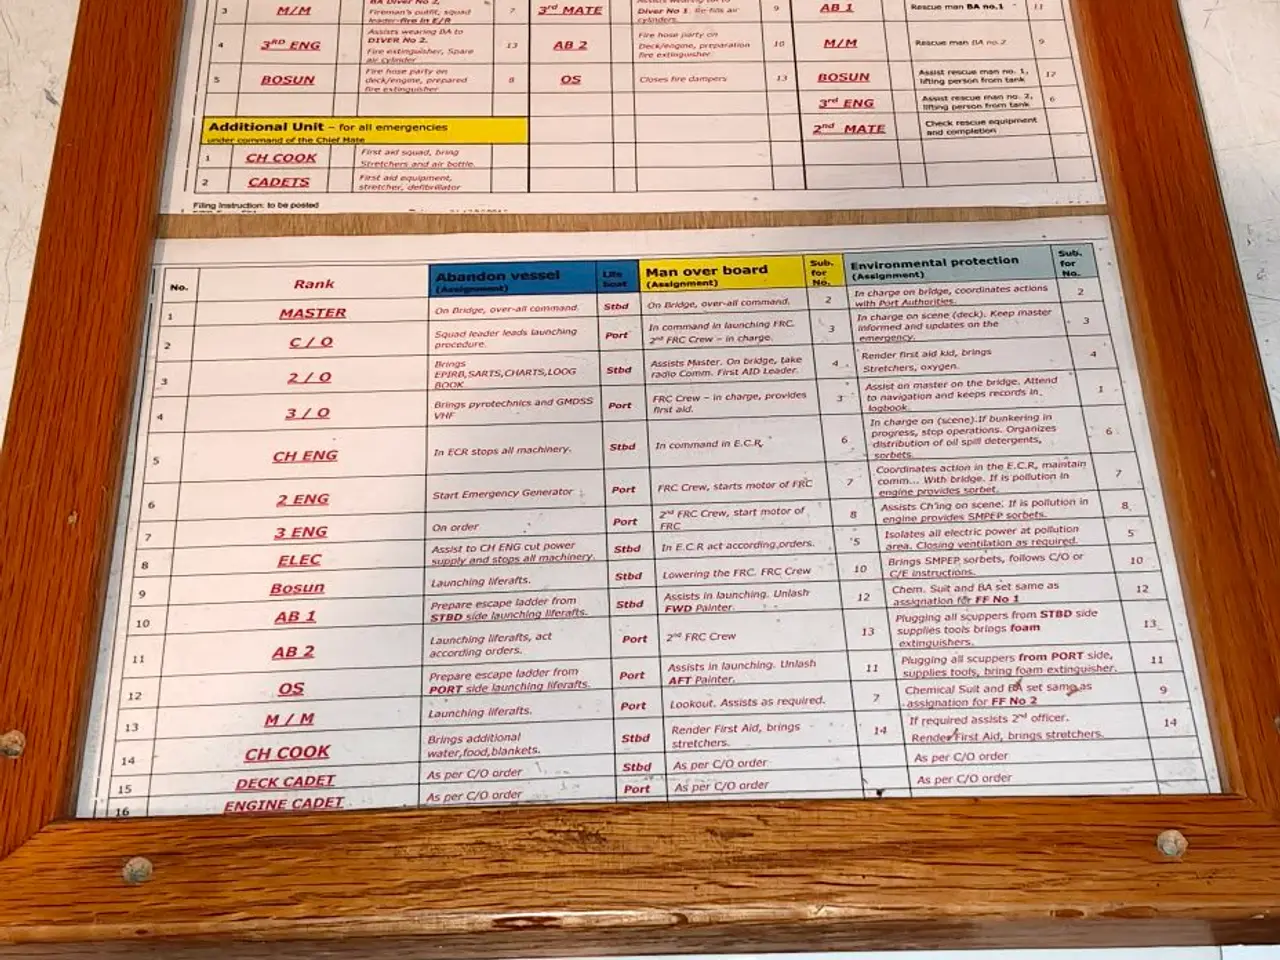 3 M/M BA Diver No 2, Fireman's outfit, squad leader-fire in E/R 7 3rd MATE Diver No 1. Re-fills air cylinders. 9 AB 1 Rescue man BA no.1 11
4 3RD ENG Assists wearing BA to DIVER No 2. Fire extinguisher, Spare air cylinder 13 AB 2 Fire hose party on Deck/engine, preparation fire extinguisher 10 M/M Rescue man BA no.2 9
5 BOSUN Fire hose party on deck/engine, prepared fire extinguisher 8 OS Closes fire dampers 13 BOSUN Assist rescue man no. 1, lifting person from tank 12
3rd ENG Assist rescue man no. 2, lifting person from tank 6
2nd MATE Check rescue equipment and completion
Additional Unit – for all emergencies
under command of the Chief Mate
1 CH COOK First aid squad, bring Stretchers and air bottle.
2 CADETS First aid equipment, stretcher, defibrillator
Filing instruction: to be posted
No. Rank Abandon vessel (Assignment) Life boat Man over board (Assignment) Sub. for No. Environmental protection (Assignment) Sub. for No.
1 MASTER On Bridge, over-all command. Stbd On Bridge, over-all command. 2 In charge on bridge, coordinates actions with Port Authorities. 2
2 C / O Squad leader leads launching procedure. Port In command in launching FRC. 2nd FRC Crew – in charge. 3 In charge on scene (deck). Keep master informed and updates on the emergency. 3
3 2 / O Brings EPIRB,SARTS,CHARTS,LOOG BOOK. Stbd Assists Master. On bridge, take radio Comm. First AID Leader. 4 Render first aid kid, brings Stretchers, oxygen. 4
4 3 / O Brings pyrotechnics and GMDSS VHF Port FRC Crew – in charge, provides first aid. 3 Assist on master on the bridge. Attend to navigation and keeps records in logbook. 1
5 CH ENG In ECR stops all machinery. Stbd In command in E.C.R. 6 In charge on (scene).If bunkering in progress, stop operations. Organizes distribution of oil spill detergents, sorbets. 6
6 2 ENG Start Emergency Generator Port FRC Crew, starts motor of FRC 7 Coordinates action in the E.C.R, maintain comm... With bridge. If is pollution in engine provides sorbet. 7
7 3 ENG On order Port 2nd FRC Crew, start motor of FRC 8 Assists Ch'ing on scene. If is pollution in engine provides SMPEP sorbets. 8
8 ELEC Assist to CH ENG cut power supply and stops all machinery. Stbd In E.C.R act according,orders. 5 Isolates all electric power at pollution area. Closing ventilation as required. 5
9 Bosun Launching liferafts. Stbd Lowering the FRC. FRC Crew 10 Brings SMPEP sorbets, follows C/O or C/E instructions. 10
10 AB 1 Prepare escape ladder from STBD side launching liferafts. Stbd Assists in launching. Unlash FWD Painter. 12 Chem. Suit and BA set same as assignation for FF No 1 12
11 AB 2 Launching liferafts, act according orders. Port 2nd FRC Crew 13 Plugging all scuppers from STBD side supplies tools brings foam extinguishers. 13
12 OS Prepare escape ladder from PORT side launching liferafts. Port Assists in launching. Unlash AFT Painter. 11 Plugging all scuppers from PORT side, supplies tools, bring foam extinguisher. 11
13 M / M Launching liferafts. Port Lookout. Assists as required. 7 Chemical Suit and BA set same as assignation for FF No 2 9
14 CH COOK Brings additional water,food,blankets. Stbd Render First Aid, brings stretchers. 14 If required assists 2nd officer. Render First Aid, brings stretchers. 14
15 DECK CADET As per C/O order Stbd As per C/O order As per C/O order
16 ENGINE CADET As per C/O order Port As per C/O order As per C/O order